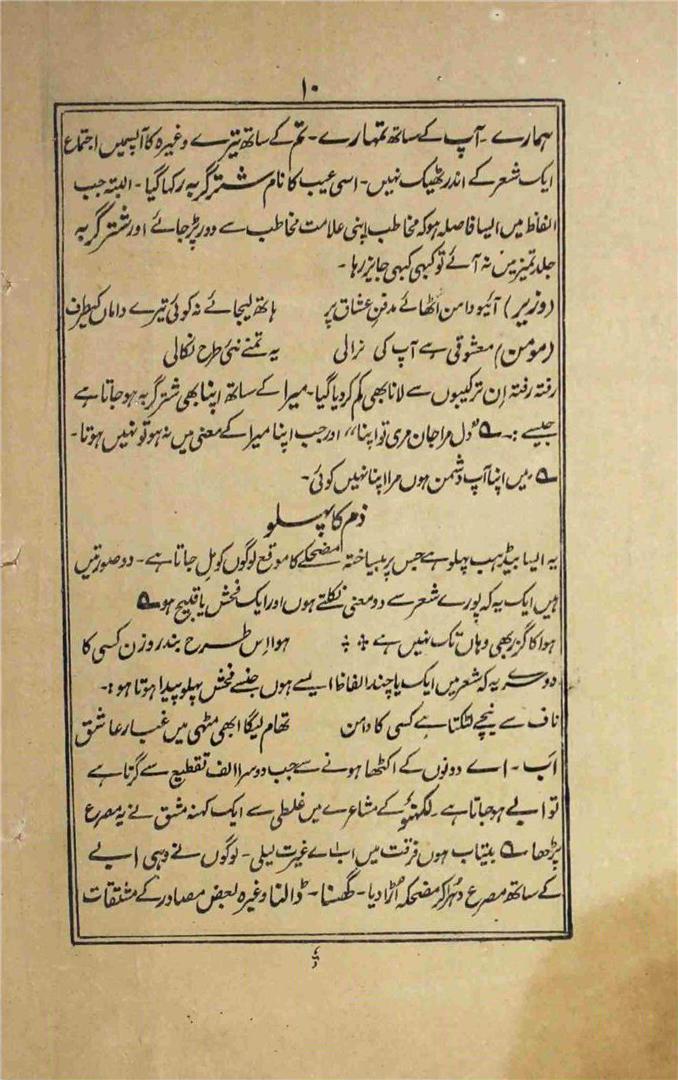 ۱۰
ہمارے ۔ آپ کے ساتھ تمہارے ۔ تم کے ساتھ تیرے وغیرہ کا آپسمیں اجتماع
ایک شعر کے اندر ٹھیک نہیں ۔ اسی عیب کا نام شترگربہ رکہا گیا ۔ البتہ جب
الفاظ میں ایسا فاصلہ ہو کہ مخاطب اپنی علامت مخاطب سے دور پڑ جائے اور شترگربہ
جلد تمیز میں نہ آئے تو کبھی کبھی جایز رہا ۔
(وزیر) آئیو دامن اُٹھائے مدفنِ عشاق پر ہاتھ لیجائے نہ کوئی تیرے داماں کیطرف
(مومن) معشوقی ہے آپ کی نرالی یہ تمنے نئی طرح نکالی
رفتہ رفتہ اِن ترکیبوں سے لانا بھی کم کر دیا گیا ۔ میرا کے ساتھ اپنا بھی شترگربہ ہو جاتا ہے
جیسے :۔ ؎ "دل مرا جان مری تو اپنا" اور جب اپنا میرا کے معنی میں نہ ہو تو نہیں ہوتا ۔
؎ میں اپنا آپ دشمن ہوں مرا اپنا نہیں کوئی ۔
ذم کا پہلو
یہ ایسا بیڈہب پہلو ہے جس پر بیساختہ مضحکے کا موقع لوگوں کو مل جاتا ہے ۔ دو صورتیں
ہیں ایک یہ کہ پورے شعر سے دو معنی نکلتے ہوں اور ایک فحش یا قبیح ہو ؎
ہوا کا گزر بھی وہاں تک نہیں ہے ہوا اِس طرح بند روزن کسی کا
دوسرے یہ کہ شعر میں ایک یا چند الفاظ ایسے ہوں جنسے فحش پہلو پیدا ہوتا ہو :۔
ناف سے نیچے لٹکتا ہے کسی کا دامن تھام لیگا ابھی مٹھی میں غبار عاشق
اَب ۔ اے دونوں کے اکٹھا ہونے سے جب دوسرا الف تقطیع سے گرتا ہے
تو ابے ہو جاتا ہے ۔ لکھنؤ کے مشاعرے میں غلطی سے ایک کہنہ مشق نے یہ مصرع
پڑھا ؎ بیتاب ہوں فرقت میں اب اے غیرت لیلی ۔ لوگوں نے وہی ابے
کے ساتھ مصرع دُہرا کر مضحکہ اُڑا دیا ۔ گھسنا ۔ ڈالنا وغیرہ بعض مصادر کے مشتقات